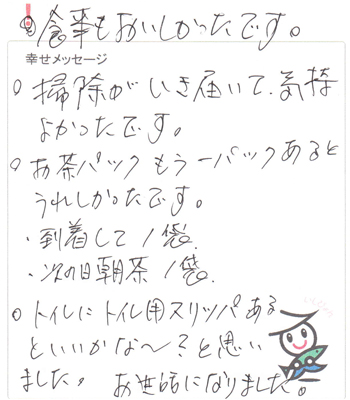 ○食事もおいしかったです。
幸せメッセージ
○掃除がいき届いて、気持
よかったです。
○お茶パックもう一パックあると
うれしかったです。
・到着して1袋、
・次の日朝茶1袋、
○トイレにトイレ用スリッパある
といいかな〜?と思い
ました。お世話になりました。